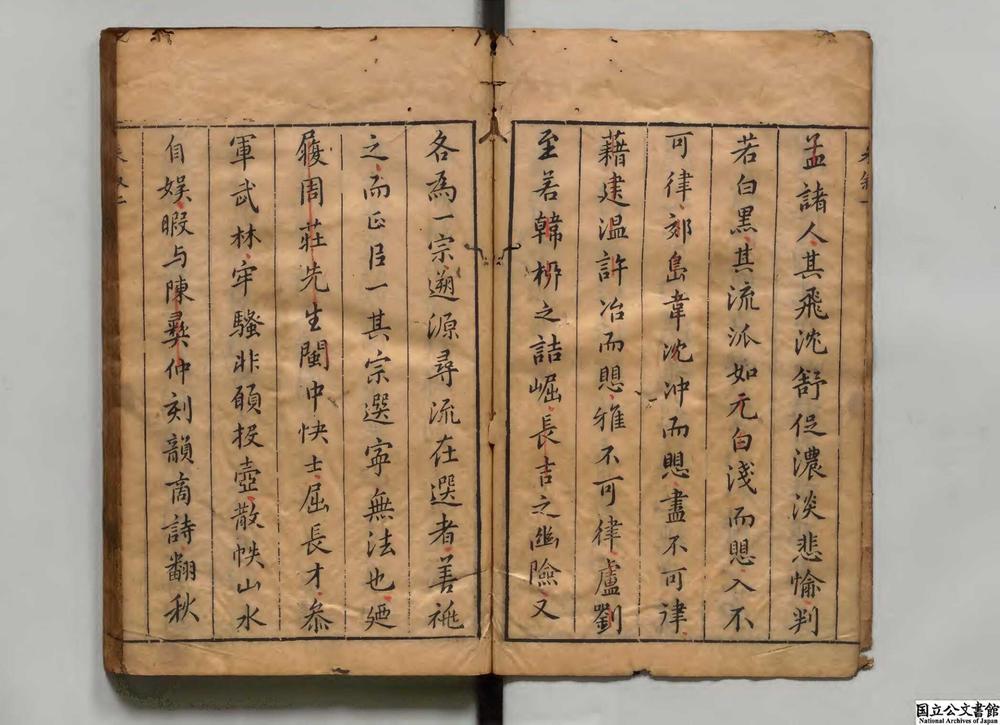 孟諸人其飛沈舒促濃淡悲愉判
若白黑其流派如元白淺而思入不
可律郊島韋沈冲而思盡不可律
藉建溫許冶而思雅不可律盧劉
至若韓柳之詰崛長吉之幽險又
各為一宗遡源尋流在選者善祧
之而正臣一其宗選寧無法也廼
履周莊先生閩中快士屈長才叅
軍武林牢騷非頠投壺散帙山水
自娛暇与陳彞仲刻韻啇詩翻秋
国立公文書館
National Archives of Japan